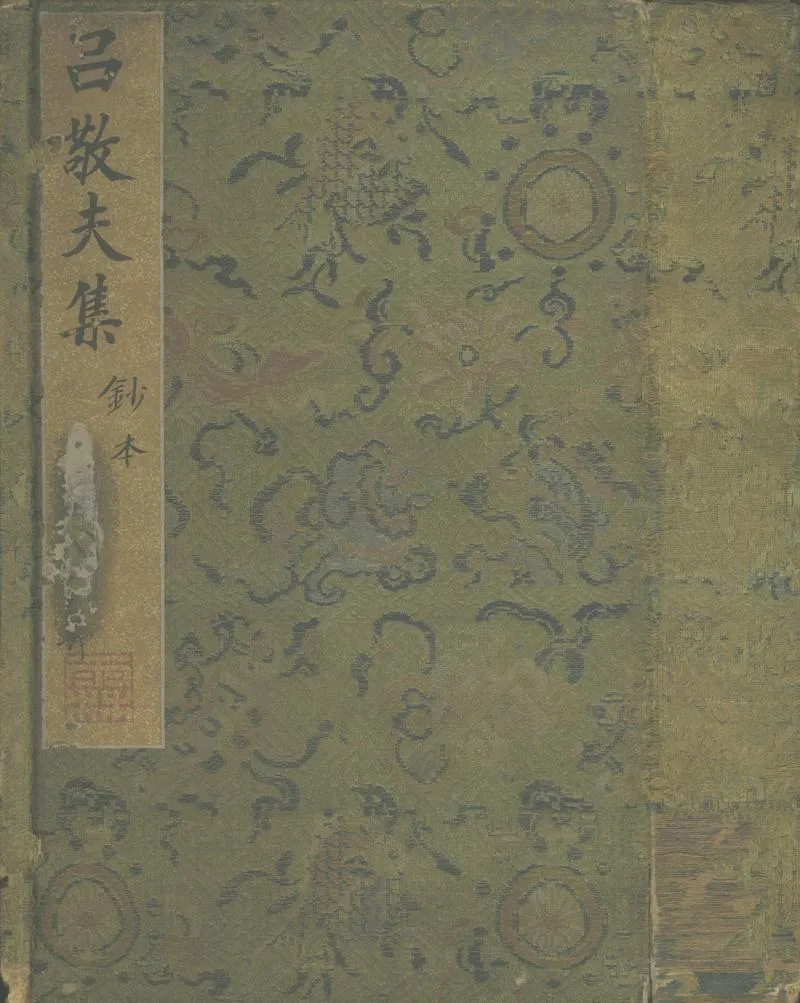 吕敬夫集
鈔本